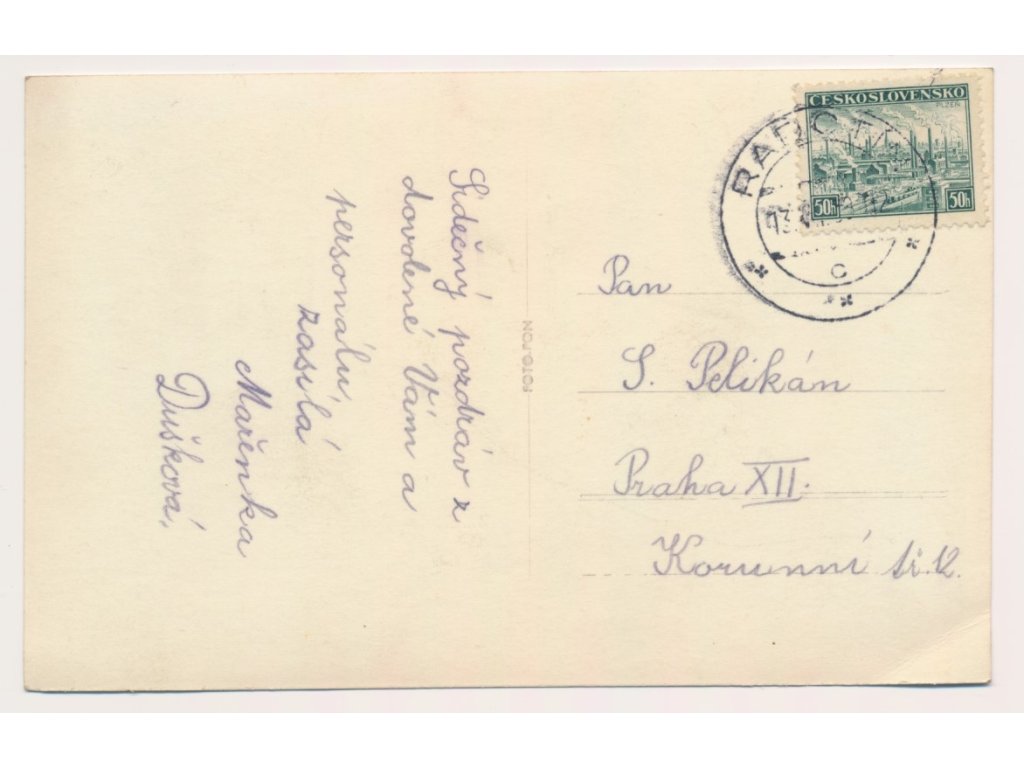 Srdečný pozdrav z
dovolené Vám a
personálu
zasílá
Mařenka
Dušková.
FOTO-FON
ČESKOSLOVENSKO
PLZEŇ
50h
50h
C
Pan
S. Pelikán
Praha XII.
Korunní tř. 12.